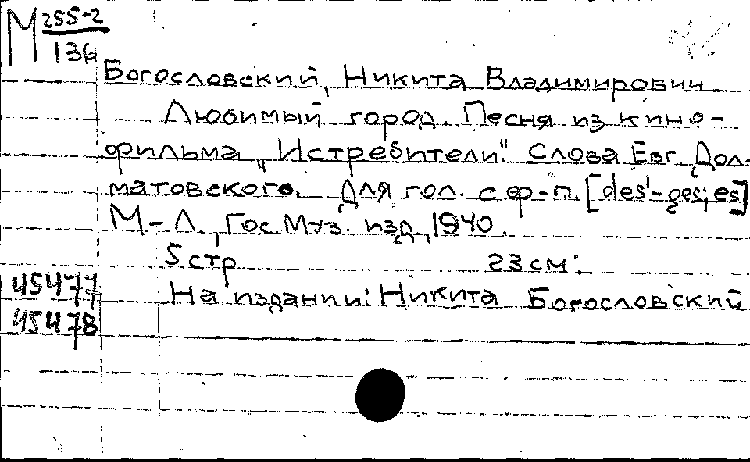 М 255-2
136
Богословский, Никита Владимирович
Любимый город. Песня из кино-
фильма „Истребители". Слова Евг. Дол-
матовского. Для гол. с ф-п. [des'-ges; es]
М-Л., Гос. Муз. изд., 1940.
5 стр 23 см.
45477
На издании: Никита Богословский
45478